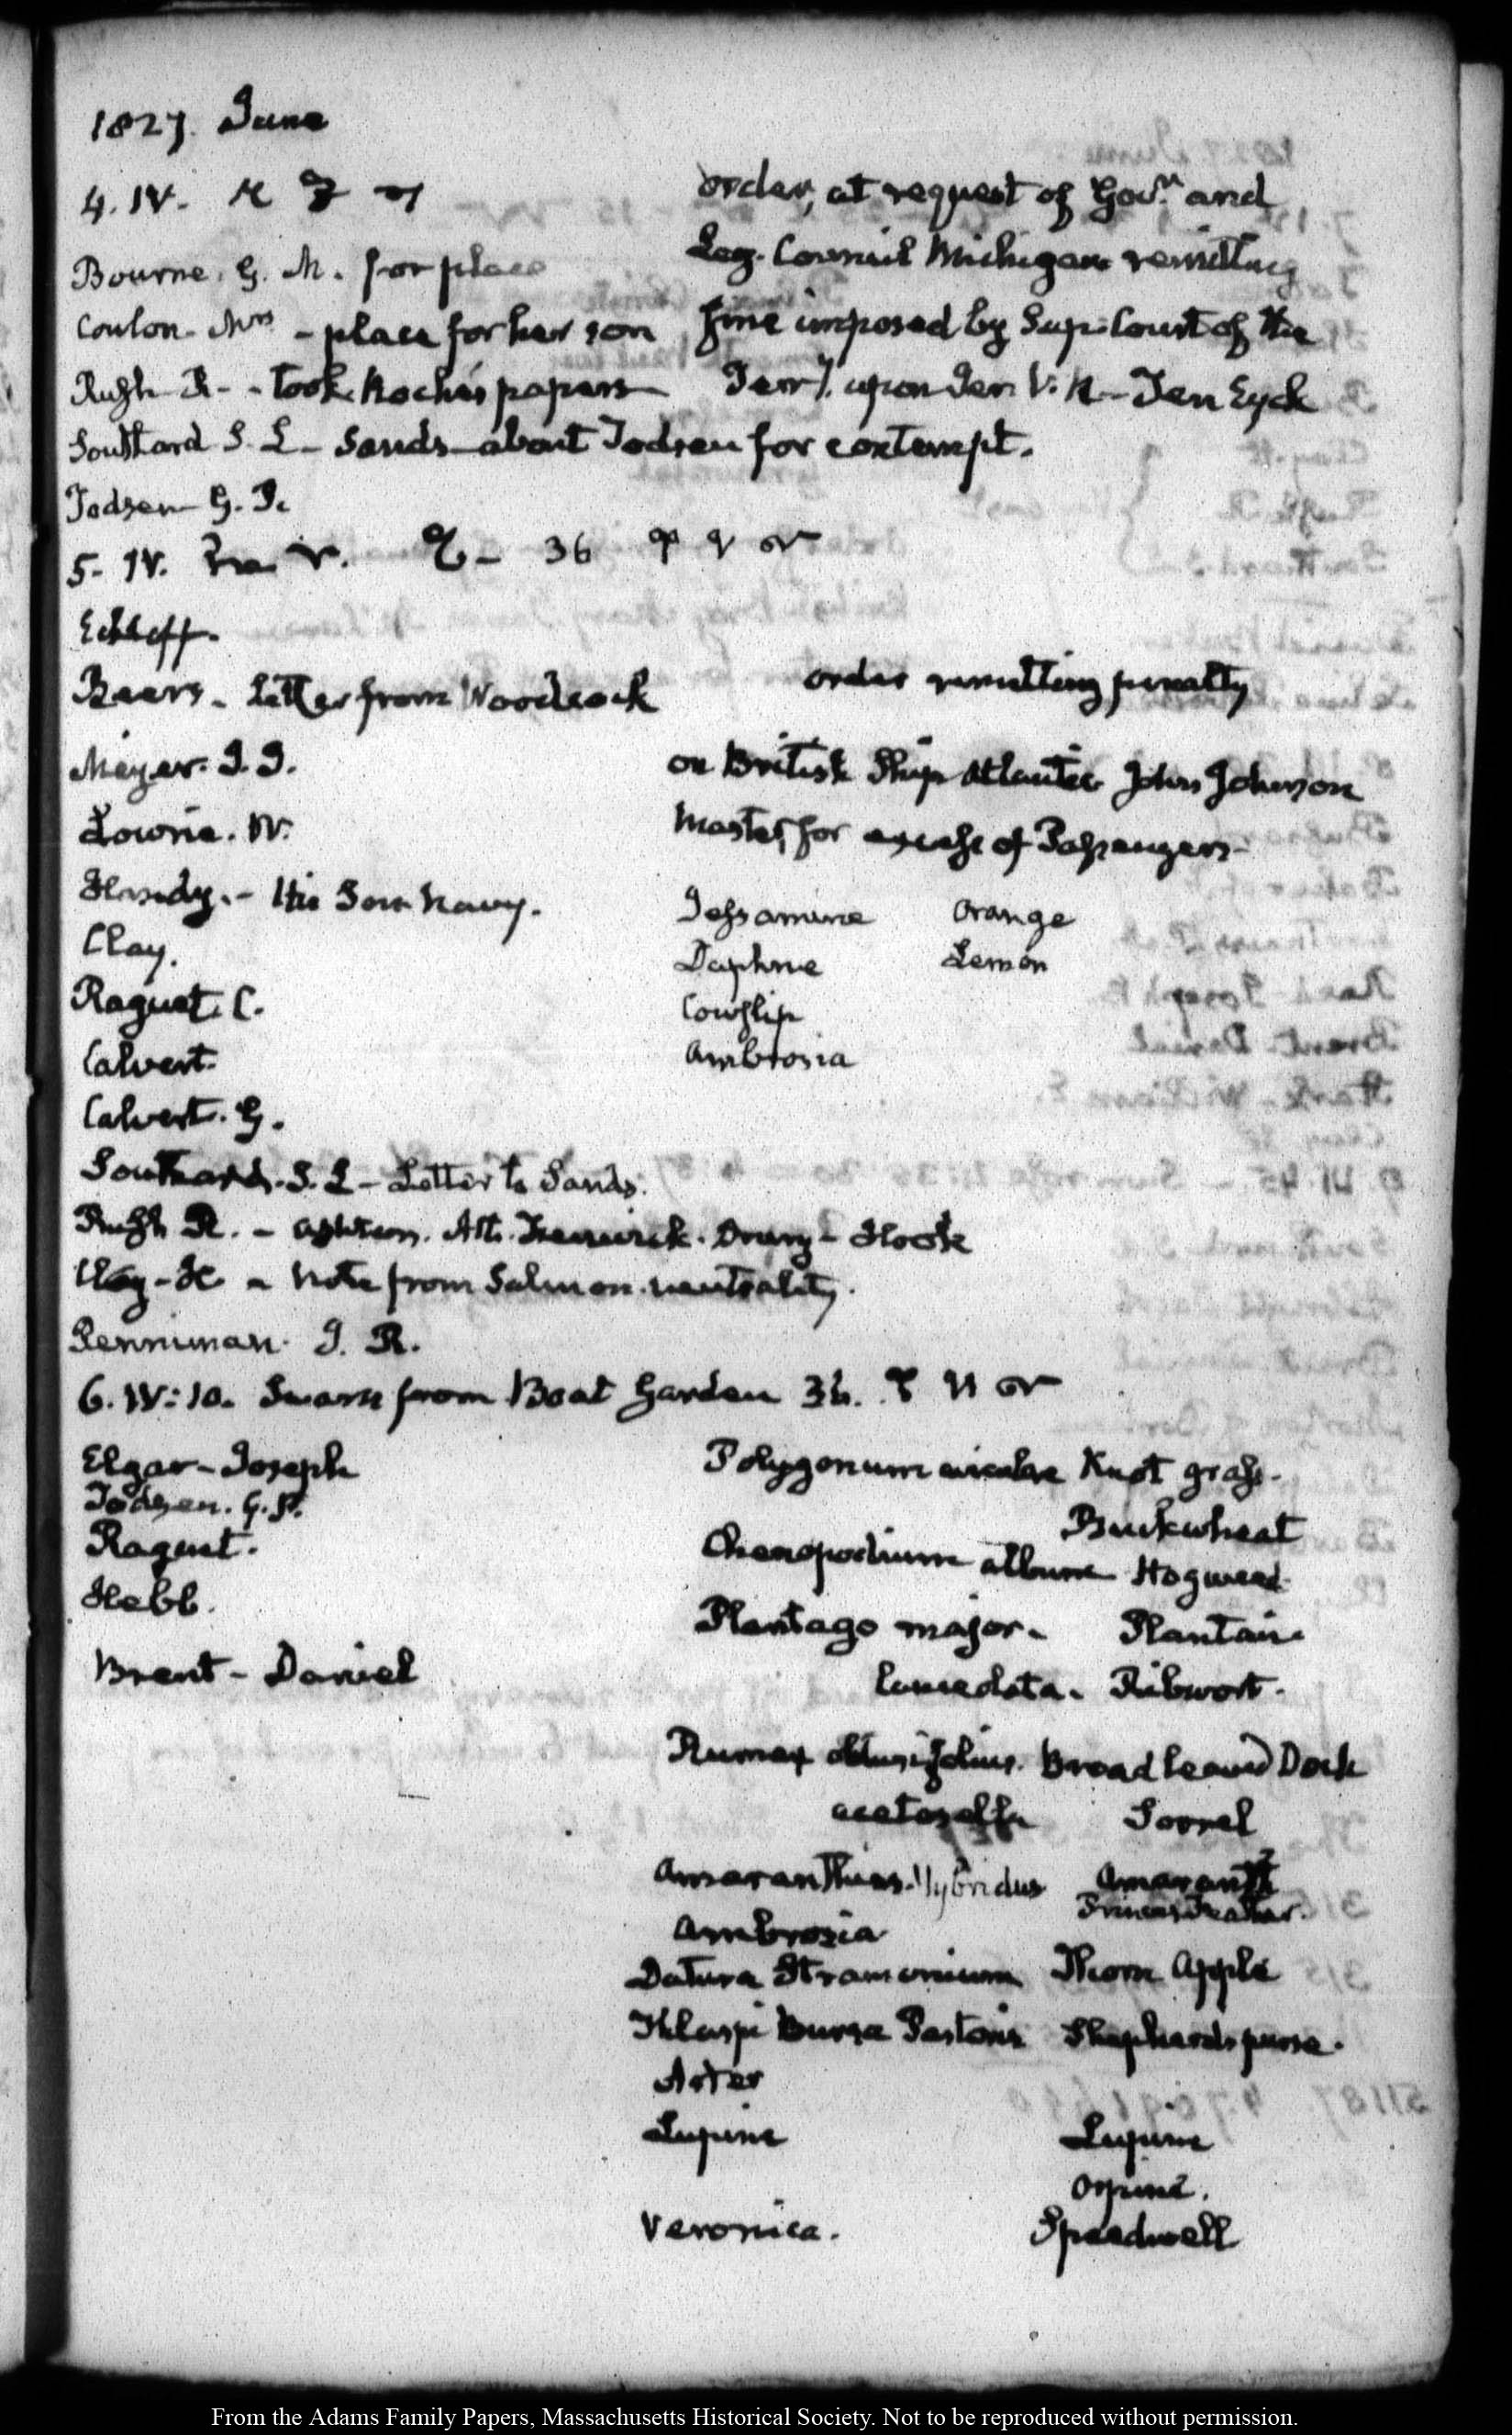 1827. June
4. IV.
Bourne. G. M. for place
Coulon. Mrs - place for her son
Rush R - - Took Roche's papers
Southard S. L - Sands - about Todsen
Todsen G. P.
order, at request of Govr. and
Leg. Council Michigan remitting
fine imposed by Sup. Court of the
Terry. upon Gen V. R - Ten Eyck
for contempt.
5. IV. 36
Eckloff.
Beers. Letter from Woodcock
Meyer. J. J.
Lowrie. W.
Handy. - His Son Navy.
Clay.
Raguet. C.
Calvert.
Calvert. G.
order remitting penalty
on British Ship Atlantic John Johnson
Master, for excess of Passengers
Jessamine Orange
Daphne Lemon
Cowslip
Ambrosia
Southard. S. L - Letter to Sands.
Rush R. - Drury - Hook
Clay - H - Note from Salmon. neutrality.
Penniman. J. R.
6. IV: 10. Swam from Boat Garden 36.
Elgar - Joseph
Todsen. G. P.
Raguet.
Hebb.
Brent - Daniel
Polygonum aviculare Knot grass.
Buckwheat
Chenopodium album Hogweed
Plantago major. Plantain
lanceolata. Ribwort.
Rumex obtusifolius. Broad leaved Dock
acetosella Sorrel
Amaranthus. Hybridus Amaranth
Princes Feather.
Ambrosia
Datura Stramonium Thorn Apple
Thlaspi Bursa Pastoris Shepherds purse.
Aster
Lupine Lupine
Orpine.
Veronica. Speedwell
From the Adams Family Papers, Massachusetts Historical Society. Not to be reproduced without permission.